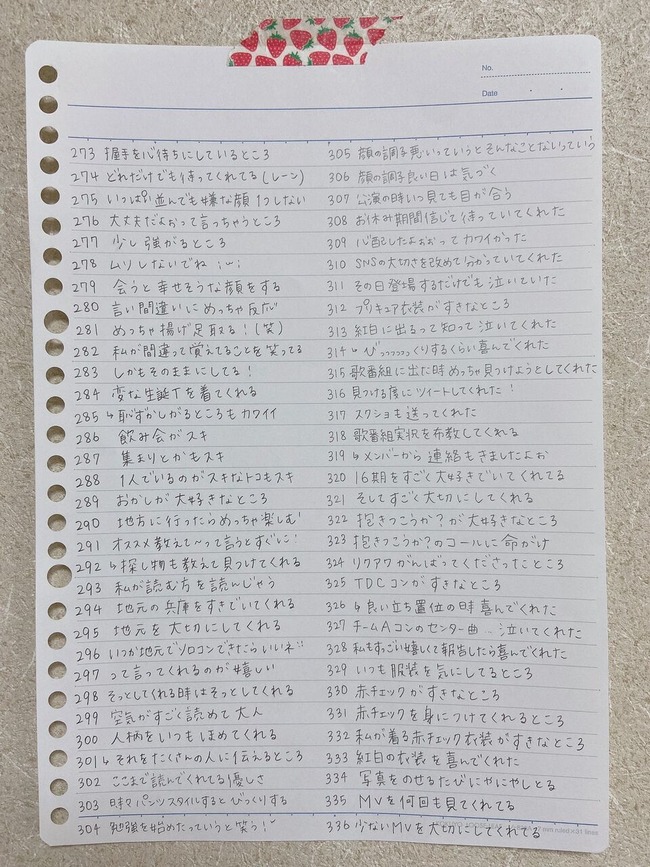 No.
Date
273 握手を心待ちにしているところ
274 どれだけでも待ってくれてる(レーン)
275 いっぱい並んでも嫌な顔1つしない
276 大丈夫だよぉって言っちゃうところ
277 少し強がるところ
278 ムリしないでね ;⌣;
279 会うと幸せそうな顔をする
280 言い間違いにめっちゃ反応
281 めっちゃ揚げ足取る!(笑)
282 私が間違って覚えてることを笑ってる
283 しかもそのままにしてる!
284 変な生誕Tを着てくれる
285 ↳恥ずかしがるところもカワイイ
286 飲み会がスキ
287 集まりとかもスキ
288 1人でいるのがスキなトコもスキ
289 おかしが大好きなところ
290 地方に行ったらめっちゃ楽しむ!
291 オススメ教えて〜って言うとすぐに!
292 ↳探し物も教えて見つけてくれる
293 私が読む方を読んじゃう
294 地元の兵庫をすきでいてくれる
295 地元を大切にしてくれる
296 いつか地元でソロコンできたらいいネ
297 って言ってくれるのが嬉しい
298 そっとしてくれる時はそっとしてくれる
299 空気がすごく読めて大人
300 人柄をいつもほめてくれる
301 ↳それをたくさんの人に伝えるところ
302 ここまで読んでくれてる優しさ
303 時々パンツスタイルするとびっくりする
304 勉強を始めたっていうと笑う!
305 顔の調子悪いっていうとそんなことないっていう
306 顔の調子良い日は気づく
307 公演の時いつ見ても目が合う
308 お休み期間信じて待っていてくれた
309 心配したよぉぉってカワイかった
310 SNSの大切さを改めて分かっていてくれた
311 その日登場するだけでも泣いていた
312 プリキュア衣装がすきなところ
313 紅白に出るって知って泣いてくれた
314 ↳びっっっっっくりするくらい喜んでくれた
315 歌番組に出た時めっちゃ見つけようとしてくれた
316 見つける度にツイートしてくれた!
317 スクショも送ってくれた
318 歌番組実況を布教してくれる
319 ↳メンバーから連絡もきましたよぉ
320 16期をすごく大好きでいてくれてる
321 そしてすごく大切にしてくれる
322 抱きつこうか?が大好きなところ
323 抱きつこうか?のコールに命がけ
324 リクアワがんばってくださったところ
325 TDCコンがすきなところ
326 ↳良い立ち位置の時喜んでくれた
327 チームAコンのセンター曲..泣いてくれた
328 私もすっごい嬉しくて報告したら喜んでくれた
329 いつも服装を気にしてるところ
330 赤チェックがすきなところ
331 赤チェックを身につけてくれるところ
332 私が着る赤チェック衣装がすきなところ
333 紅白の衣装を喜んでくれた
334 写真をのせるたびにやにやしとる
335 MVを何回も見てくれてる
336 少ないMVを大切にしてくれてる